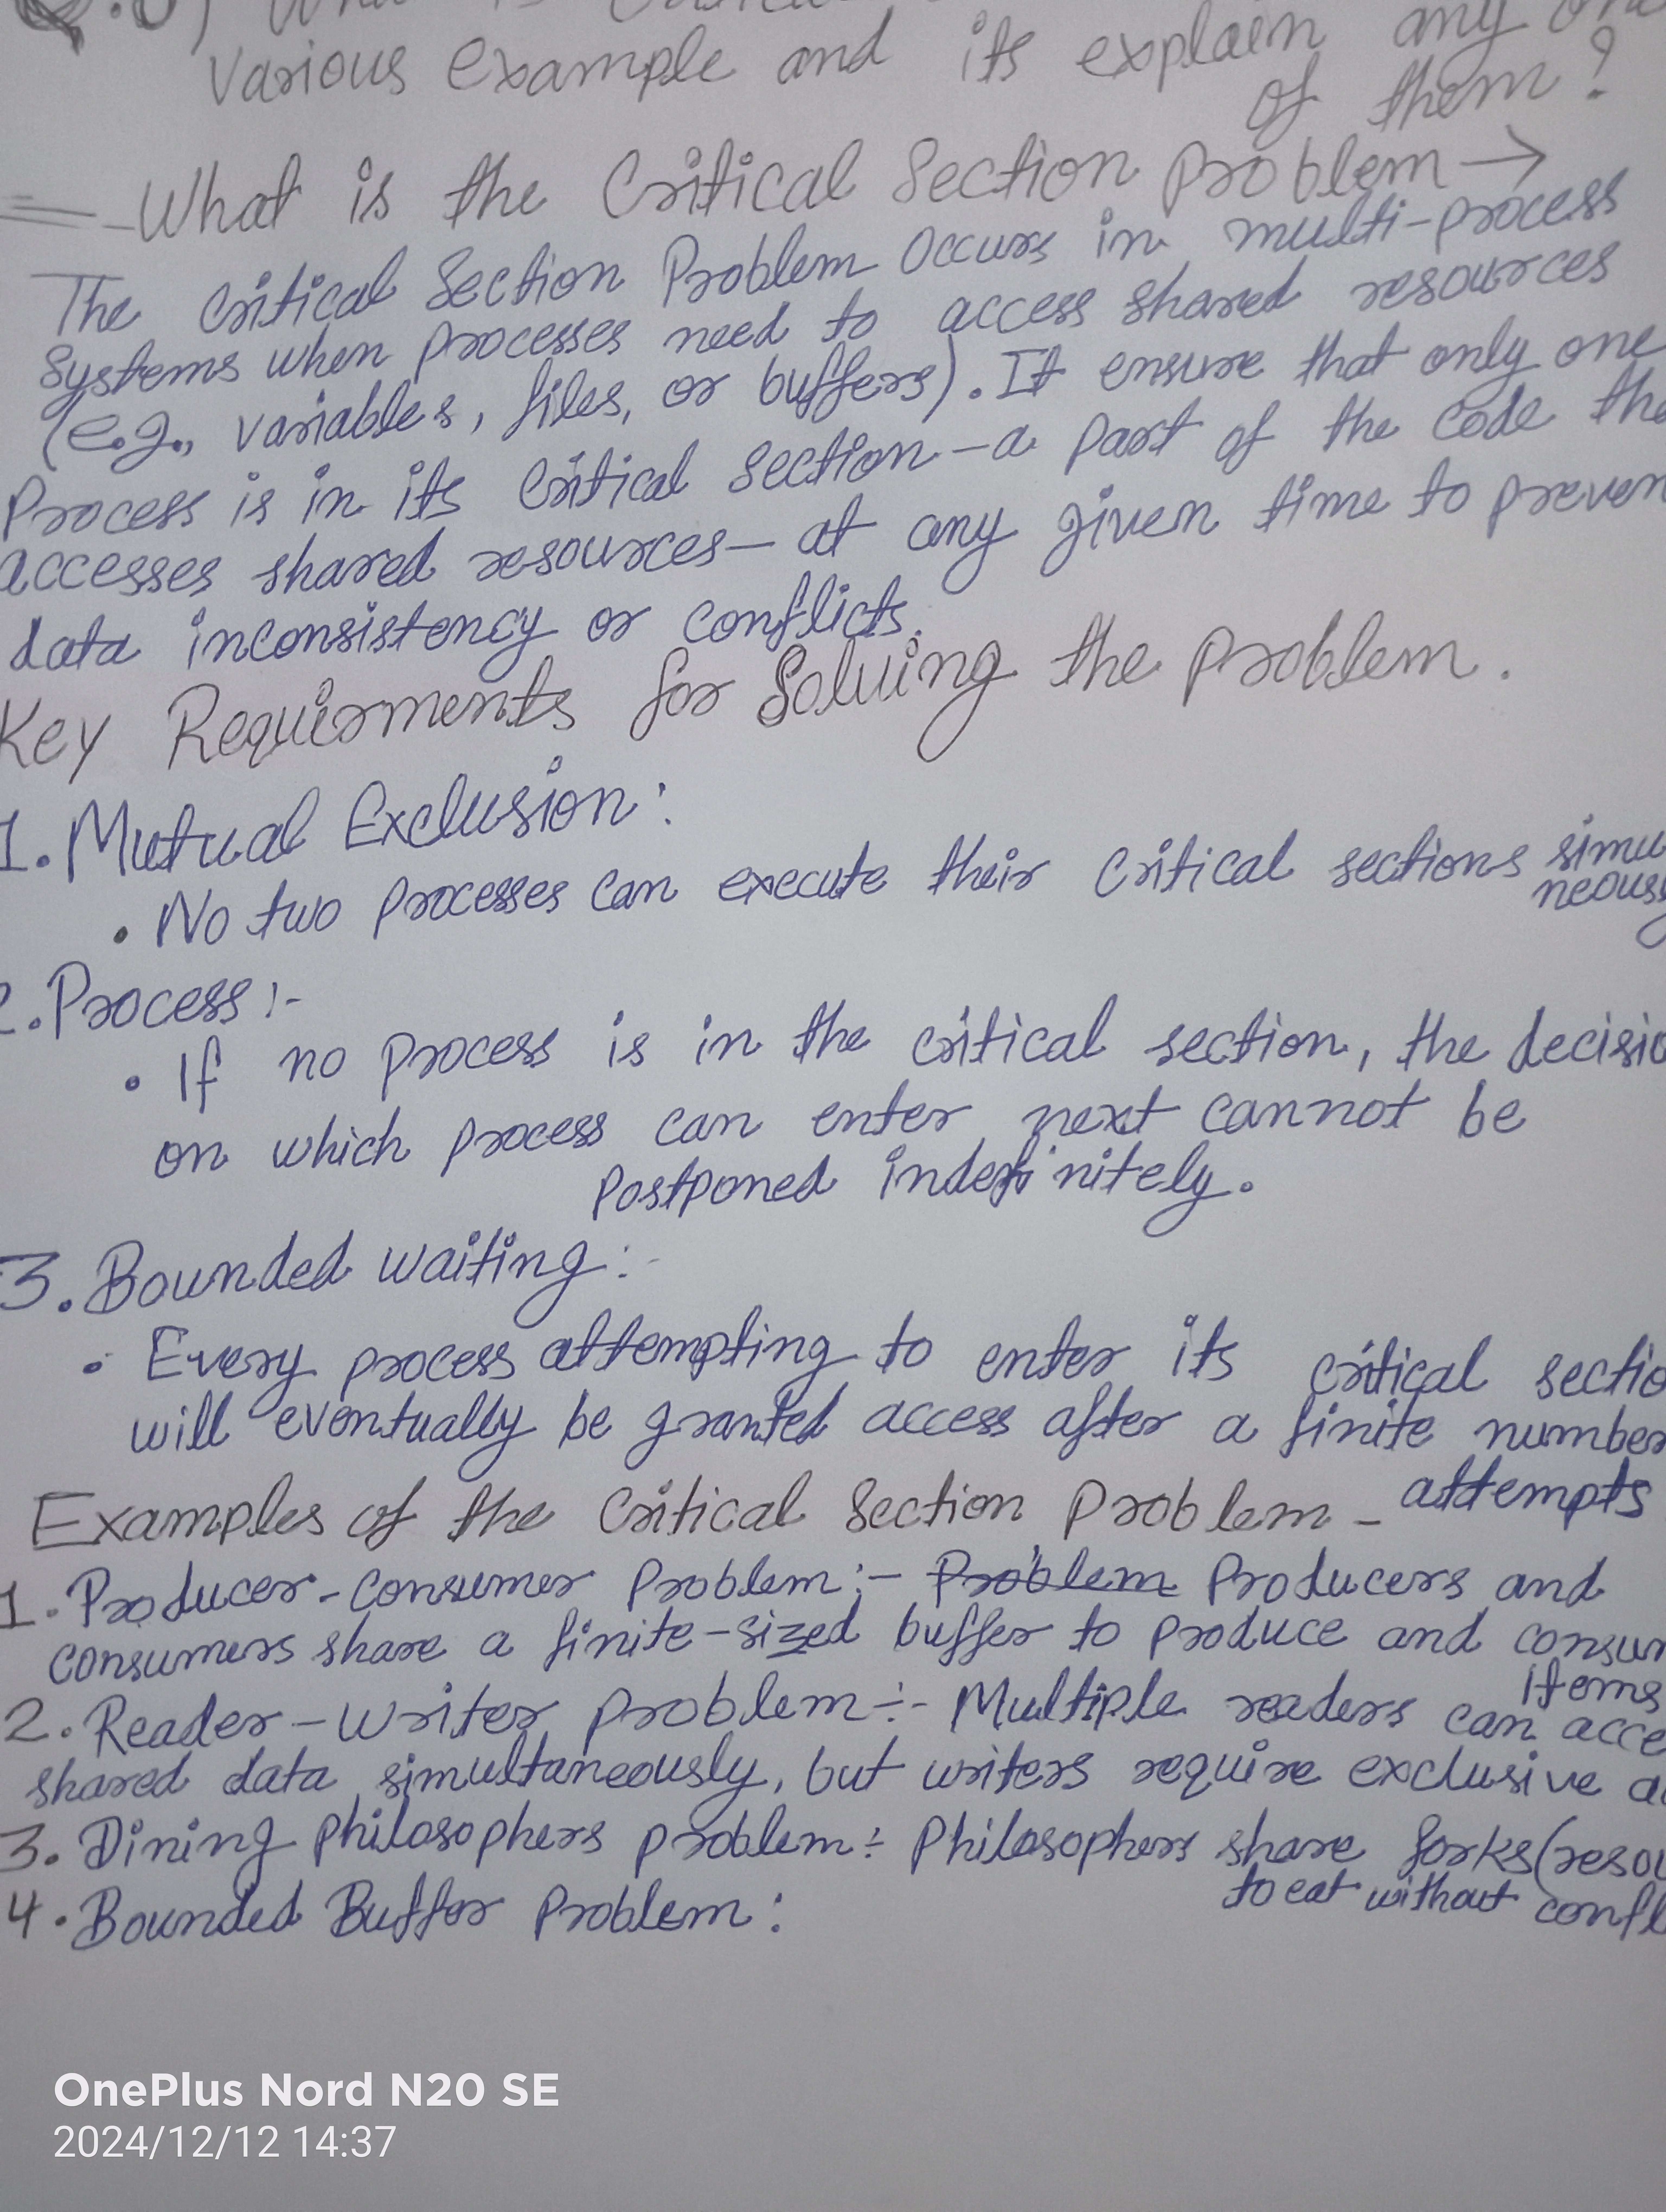 various example and its explain any
of them?
What is the Critical Section problem →
The Critical Section Problem Occurs in multi-process
systems when processes need to access shared resources
(e.g., variables, files, or buffers). It ensure that only one
Process is in its Critical section - a part of the code
accesses shared resources - at any given time to
data inconsistency or conflicts.
Key Requirments for Solving the problem.
1. Mutual Exclusion:
• No two processes can execute their Critical sections
2. Process :-
• If no process is in the critical section, the
on which process can enter next cannot be
postponed indefinitely.
3. Bounded waiting :-
• Every process attempting to enter its critical
will eventually be granted access after a finite number
attempts
Examples of the Critical Section Problem -
1. Producer-Consumer Problem :- Problem Producers and
consumers share a finite-sized buffer to produce and
items
2. Reader-writer problem :- Multiple readers can
shared data simultaneously, but writers require exclusive
3. Dining philosophers problem : Philosophers share forks
to eat without
4. Bounded Buffer Problem :
OnePlus Nord N20 SE
2024/12/12 14:37